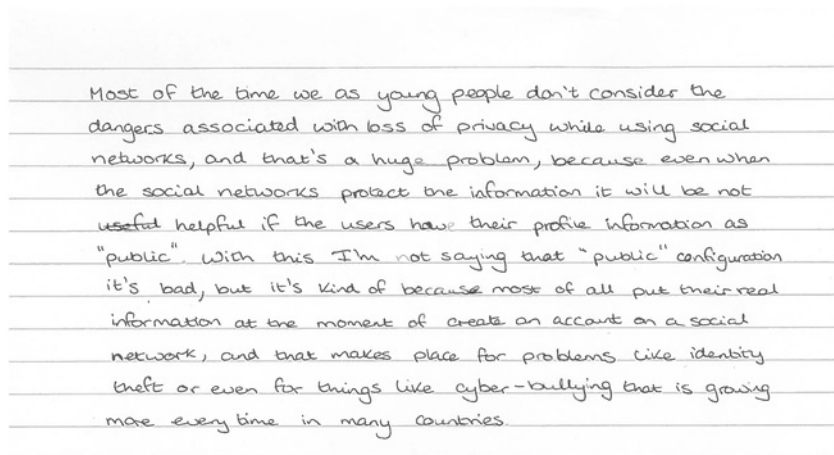 Most of the time we as young people don't consider the
dangers associated with loss of privacy while using social
networks, and that's a huge problem, because even when
the social networks protect the information it will be not
useful helpful if the users have their profile information as
"public". With this I'm not saying that "public" configuration
it's bad, but it's kind of because most of all put their real
information at the moment of create an account on a social
network, and that makes place for problems like identity
theft or even for things like cyber-bullying that is growing
more every time in many countries.